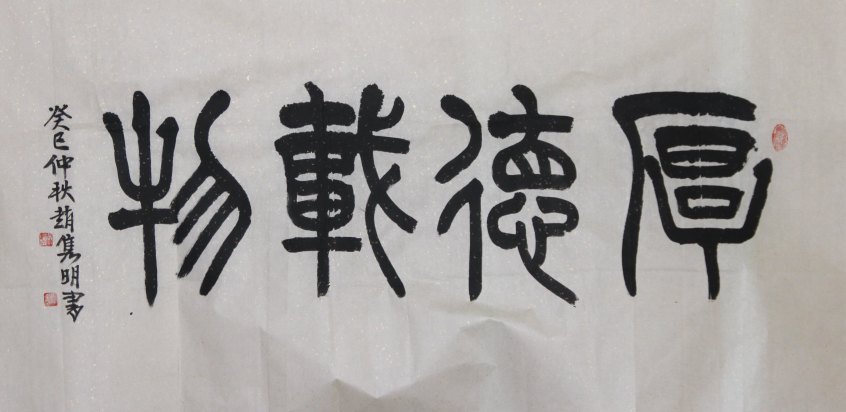 厚德載物
癸巳仲秋趙隽明書